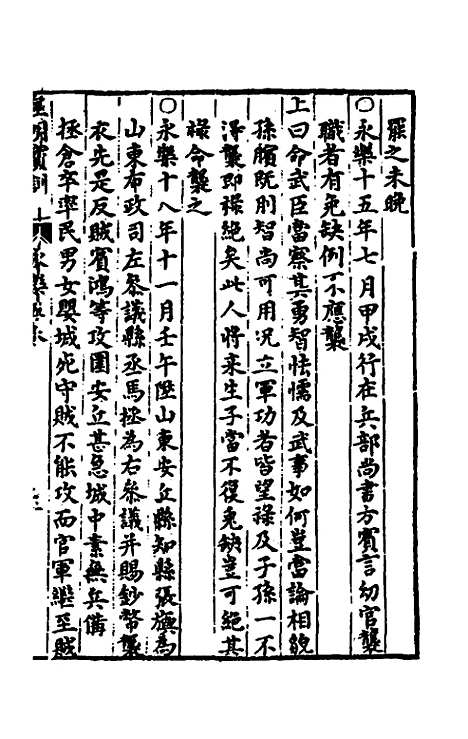 罪之未晚
〇永樂十五年七月甲戌行在兵部尚書方賓言幼官襲
職者有兔缺例不應襲
上曰命武臣當察其勇智怯懦及武事如何豈當論相貌
孫臏既刖智尚可用況立軍功者皆望祿及子孫一不
得襲即祿絕矣此人將來生子當不復兔缺豈可絕其
祿命襲之
〇永樂十八年十一月壬午陞山東安丘縣知縣張旟為
山東布政司左叅議縣丞馬撝為右叅議并賜鈔幣襲
衣先是反賊賓鴻等攻圍安丘甚急城中素無兵備
拯倉卒率民男女嬰城死守賊不能攻而官軍繼至賊
皇明寶訓